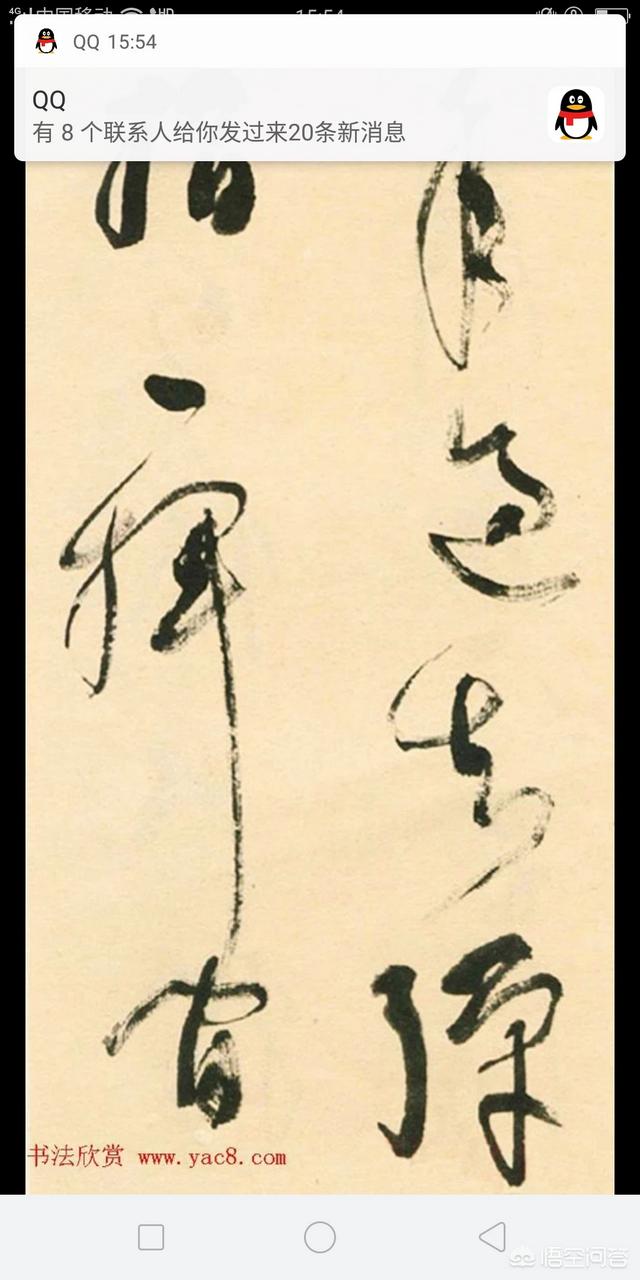 4G 中国移动 15:54
QQ 15:54
QQ
有 8 个联系人给你发过来20条新消息
年過去彈
指一揮間
书法欣赏 www.yac8.com
悟空问答